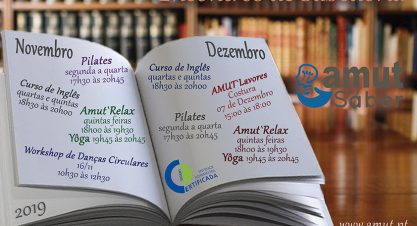 Novembro
Pilates
segunda a quarta
17h30 às 20h45
Curso de Inglês
quartas e quintas
18h30 às 20h00
Amut'Relax
quintas feiras
18h00 às 19h30
Yôga 19h45 às 20h45
Workshop de Danças Circulares
16/11
10h30 às 12h30
2019
Dezembro
Curso de Inglês
quartas e quintas
18h30 às 20h00
AMUT'Lavores
Costura
07 de Dezembro
15:00 às 18:00
Pilates
segunda a quarta
17h30 às 20h45
Amut'Relax
quintas feiras
18h00 às 19h30
Yôga 19h45 às 20h45
CERTIFICADA
amut
Saber
www.amut.pt